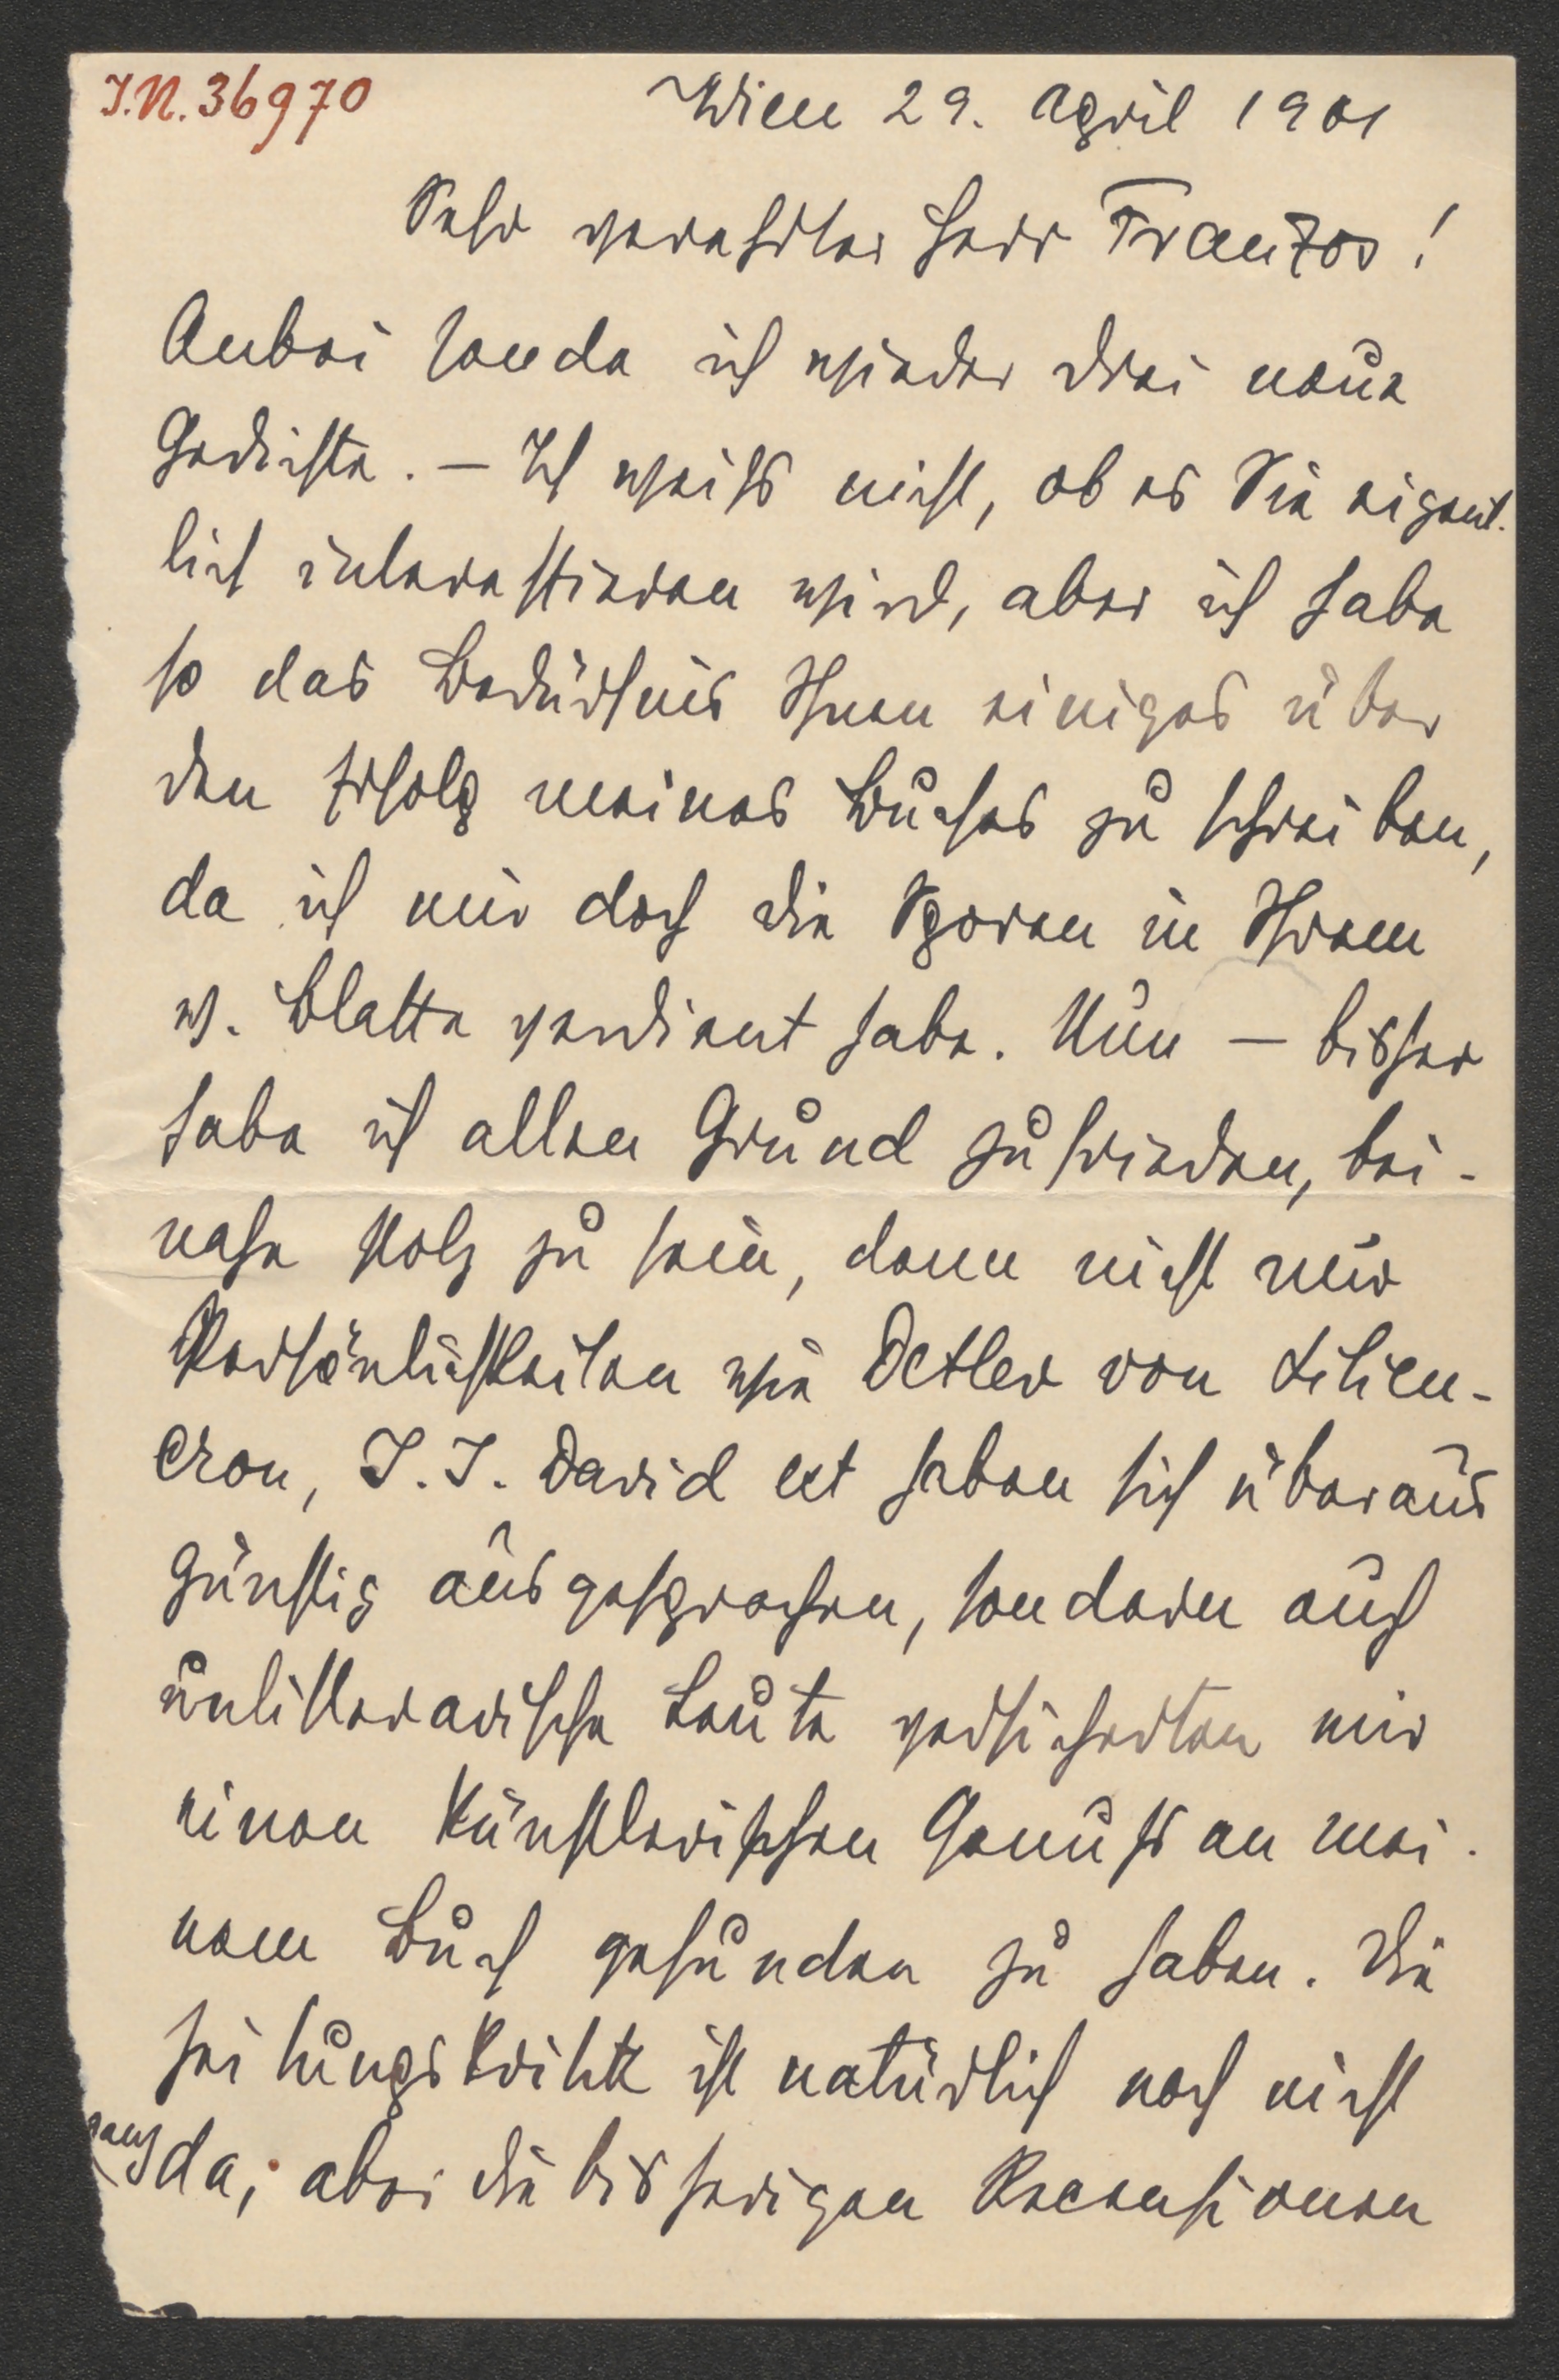 J.N. 36970
Wien 29. April 1901
Sehr verehrter Herr Franzos!
Anbei sende ich wieder drei neue
Gedichte. – Ich weiss nicht, ob es Sie eigent-
lich interessieren wird, aber ich habe
so das Bedürfnis Ihnen einiges über
den Erfolg meines Buches zu schreiben,
da ich mir doch die Sporen in Ihrem
w. Blatte verdient habe. Nun – bisher
habe ich allen Grund zufrieden, bei-
nahe stolz zu sein, denn nicht nur
Persönlichkeiten wie Detlev von Lilien-
cron, J. J. David ect haben sich überaus
günstig ausgesprochen, sondern auch
unlitterarische Leute versicherten mir
einen künstlerischen Genuss an mei-
nem Buch gefunden zu haben. Die
Zeitungskritik ist natürlich noch nicht
ganz da; aber die bisherigen Recensionen